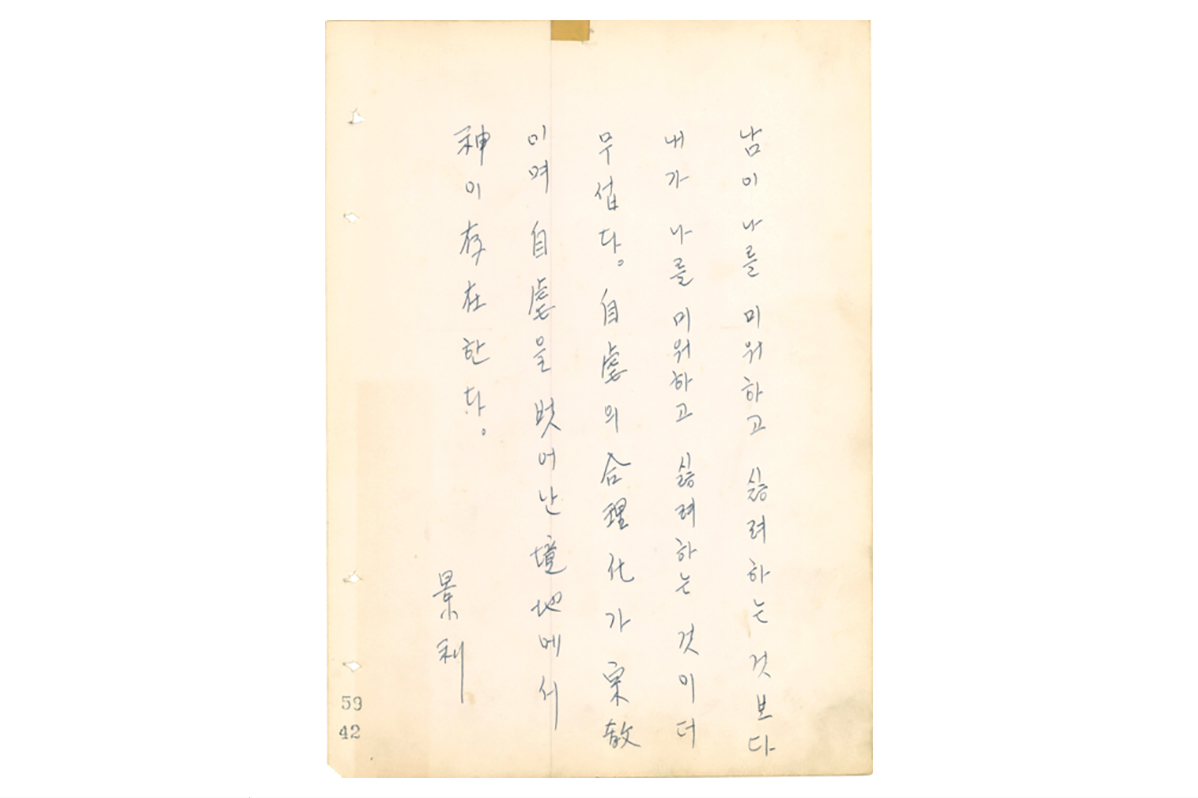 남이 나를 미워하고 싫여하는 것보다
내가 나를 미워하고 싫여하는 것이 더
무섭다。自虐의 合理化가 宗敎
이며 自虐을 벗어난 境地에서
神이 存在한다。
景利
59
42